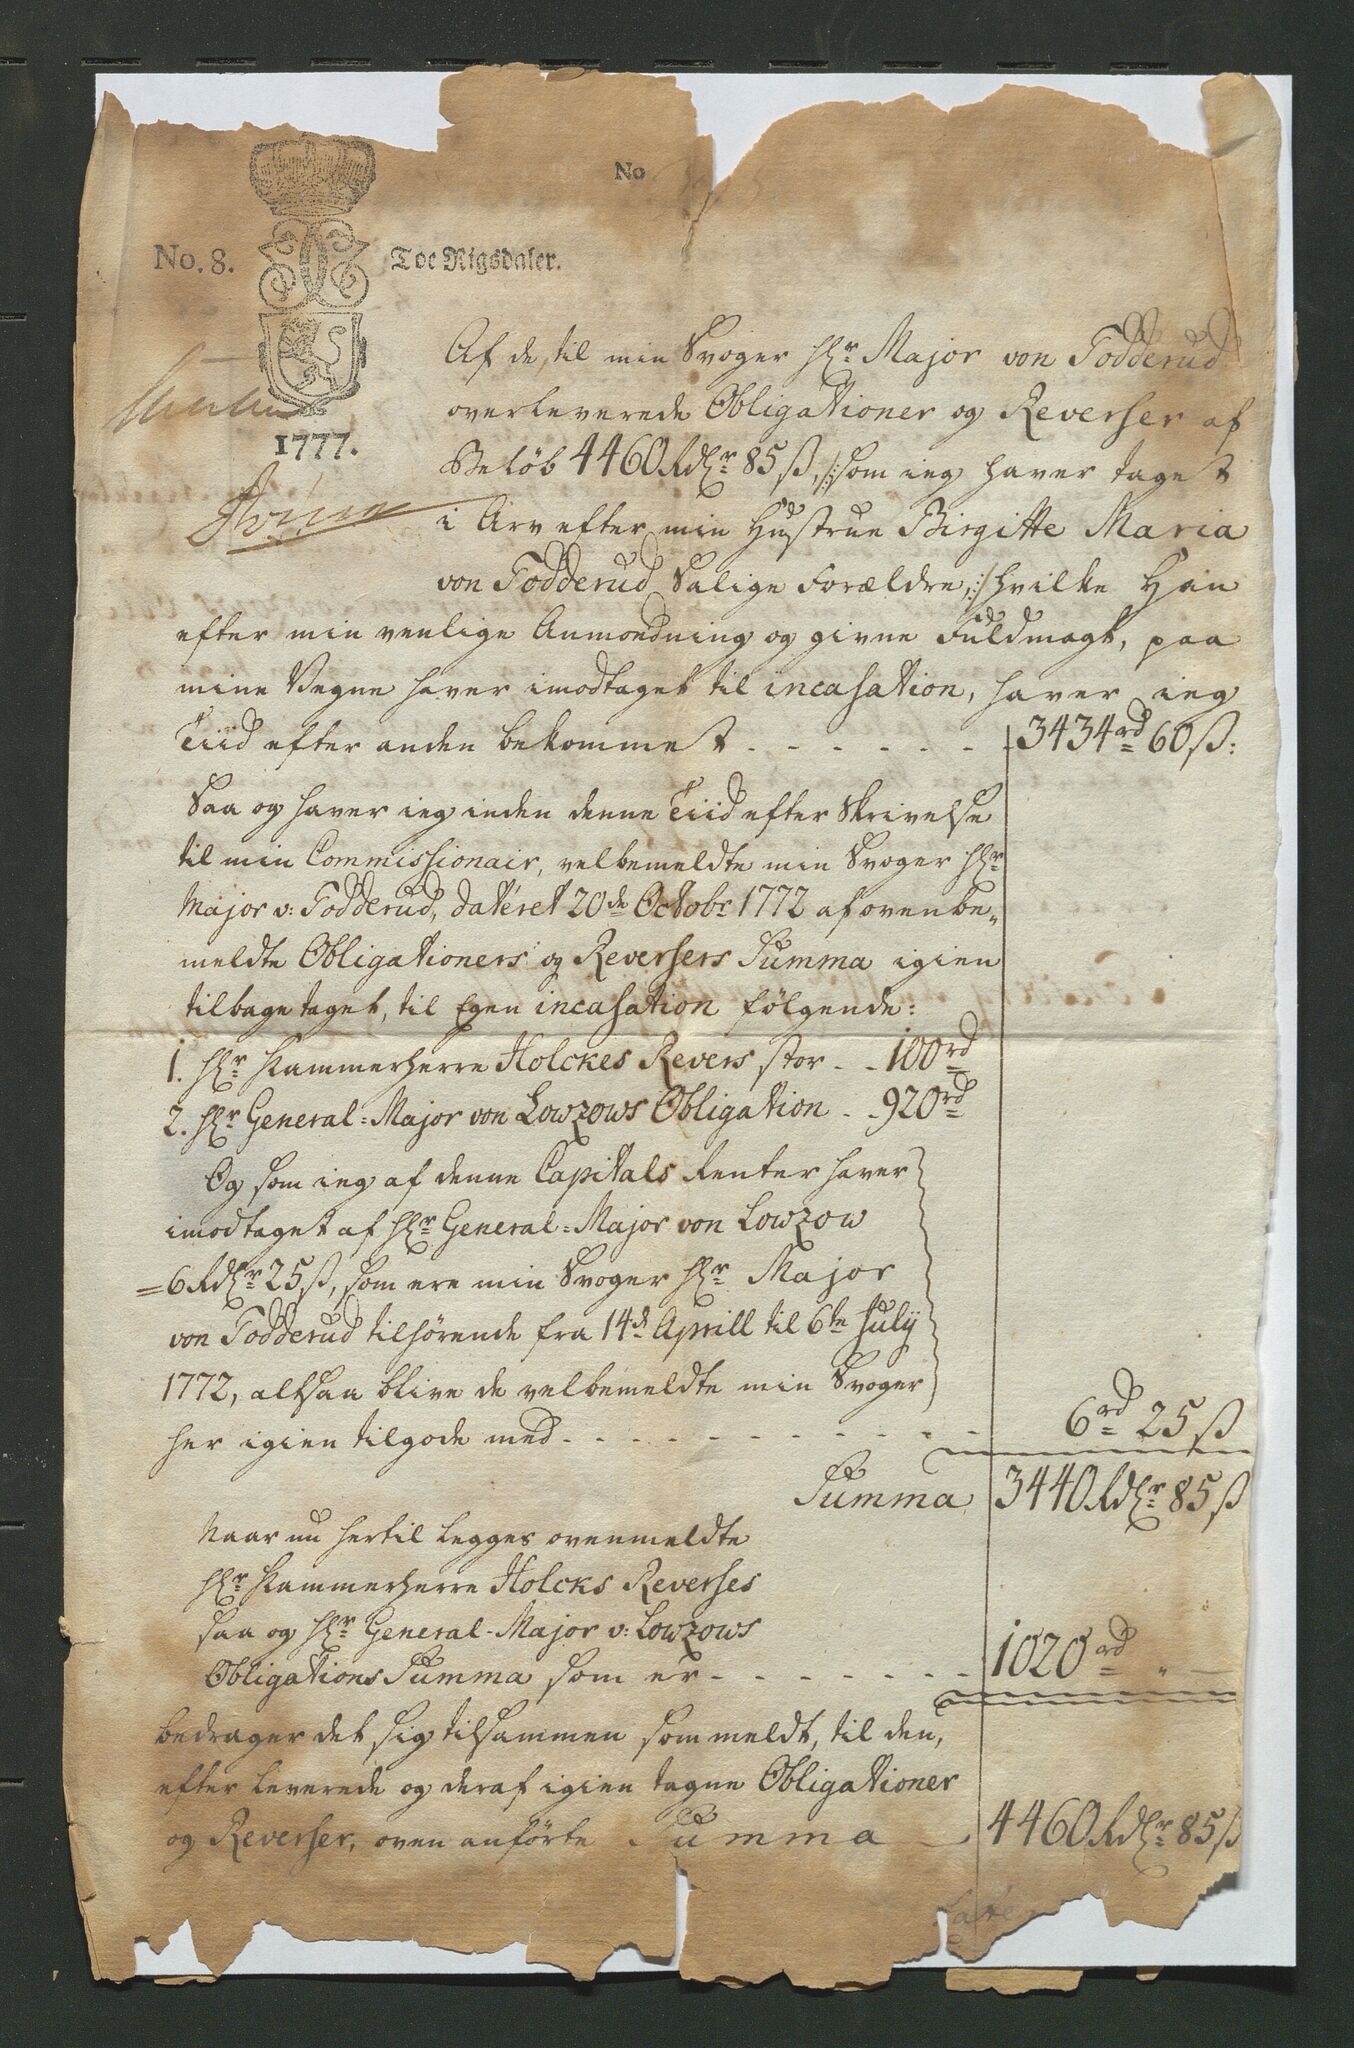 No
No. 8.
Toe Rigsdaler.
1777.
Af de, til min Svoger Hr Major von Todderud
overleverede Obligationer og Reverser af
Beløb 4460 Rdlr 85 ß, /: som ieg haver taget
i Arv efter min Hustrue Birgitte Maria
von Todderud Salige Forældre, :/ hvilke Han
efter min venlige Anmodning og givne Fuldmagt, paa
mine Vegne haver imodtaget til incasation, haver ieg
Tiid efter anden bekommet - - - - - - 3434rd 60 ß:
Saa og haver ieg inden denne Tiid efter Skrivelse
til min Commissionair, velbemeldte min Svoger Hr
Major v: Todderud, dateret 20de Octobr 1772 af ovenbe-
meldte Obligationers og Reversers Summa igien
tilbage taget, til Egen incasation følgende:
1. Hr Kammerherre Holckes Revers stor - - 100rd
2. Hr General-Major von Lowzows Obligation - - 920rd
Og som ieg af denne Capitals Renter haver
imodtaget af Hr General-Major von Lowzow
= 6 Rdlr 25 ß, som ere min Svoger Hr Major
von Todderud tilhørende fra 14de Aprill til 6te July
1772, altsaa blive de velbemeldte min Svoger
her igien tilgode med - - - - - - - - - - - 6rd 25 ß
Summa 3440 Rdlr 85 ß
Naar nu hertil legges ovenmeldte
Hr Kammerherre Holcks Reverses
saa og Hr General-Major v: Lowzows
Obligations Summa som er - - - - - - - 1020rd " —
bedrager det sig tilsammen som meldt, til den,
efter leverede og deraf igien tagne Obligationer
og Reverser, oven anførte Summa - 4460 Rdlr 85 ß